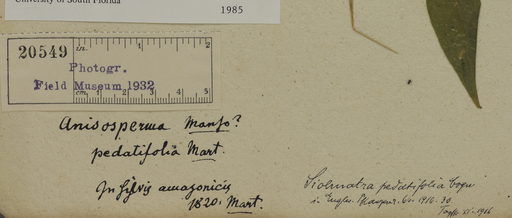 University of South Florida
1985
20549
in. 1 2
Photogr.
Field Museum 1932
cm 1 2 3 4 5
Anisosperma Manso?
pedatifolia Mart.
In sylvis amazonicis
1820. Mart.
Siolmatra pedatifolia Cogn
in Engler. Pflanzenr. 66. 1916. 30
1916